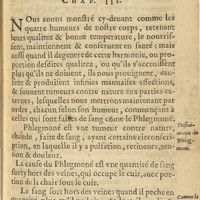 CHAP. III.
NOus avons monstré cy-devant comme les
quatre humeurs de nostre corps, retenant
leurs qualitez & bonne temperature, le nourris-
sent, maintiennent & conservent en santé : mais
aussi quand il degenerent de cette harmonie, ou pro-
portion desdites qualitez, ou s'ils s'accroissent
plus qu'ils ne doivent, ils nous provignent, exu-
& produisent infinies mauvaises affections,
& souvent tumeurs contre nature aux parties ex-
ternes, lesquelles nous recherchons maintenant
par ordre, chacun selon son humeur, commençant
celles qui sont faites de sang côme le Phlegmoné.
Phlegmoné est vne tumeur contre nature,
chaude, faite de sang, ayant certaine circonscri-
ption, en laquelle il y a pulsation, retinence, ten-
sion & douleur.
La cause du Phlegmoné est vne quantité de sang
sorty hors des veines, qui occupe le cuir, avec por-
tion de la chair sous le cuir.
Le sang sort hors des veines quand il peche en
Phleg-
moné.
Comme le